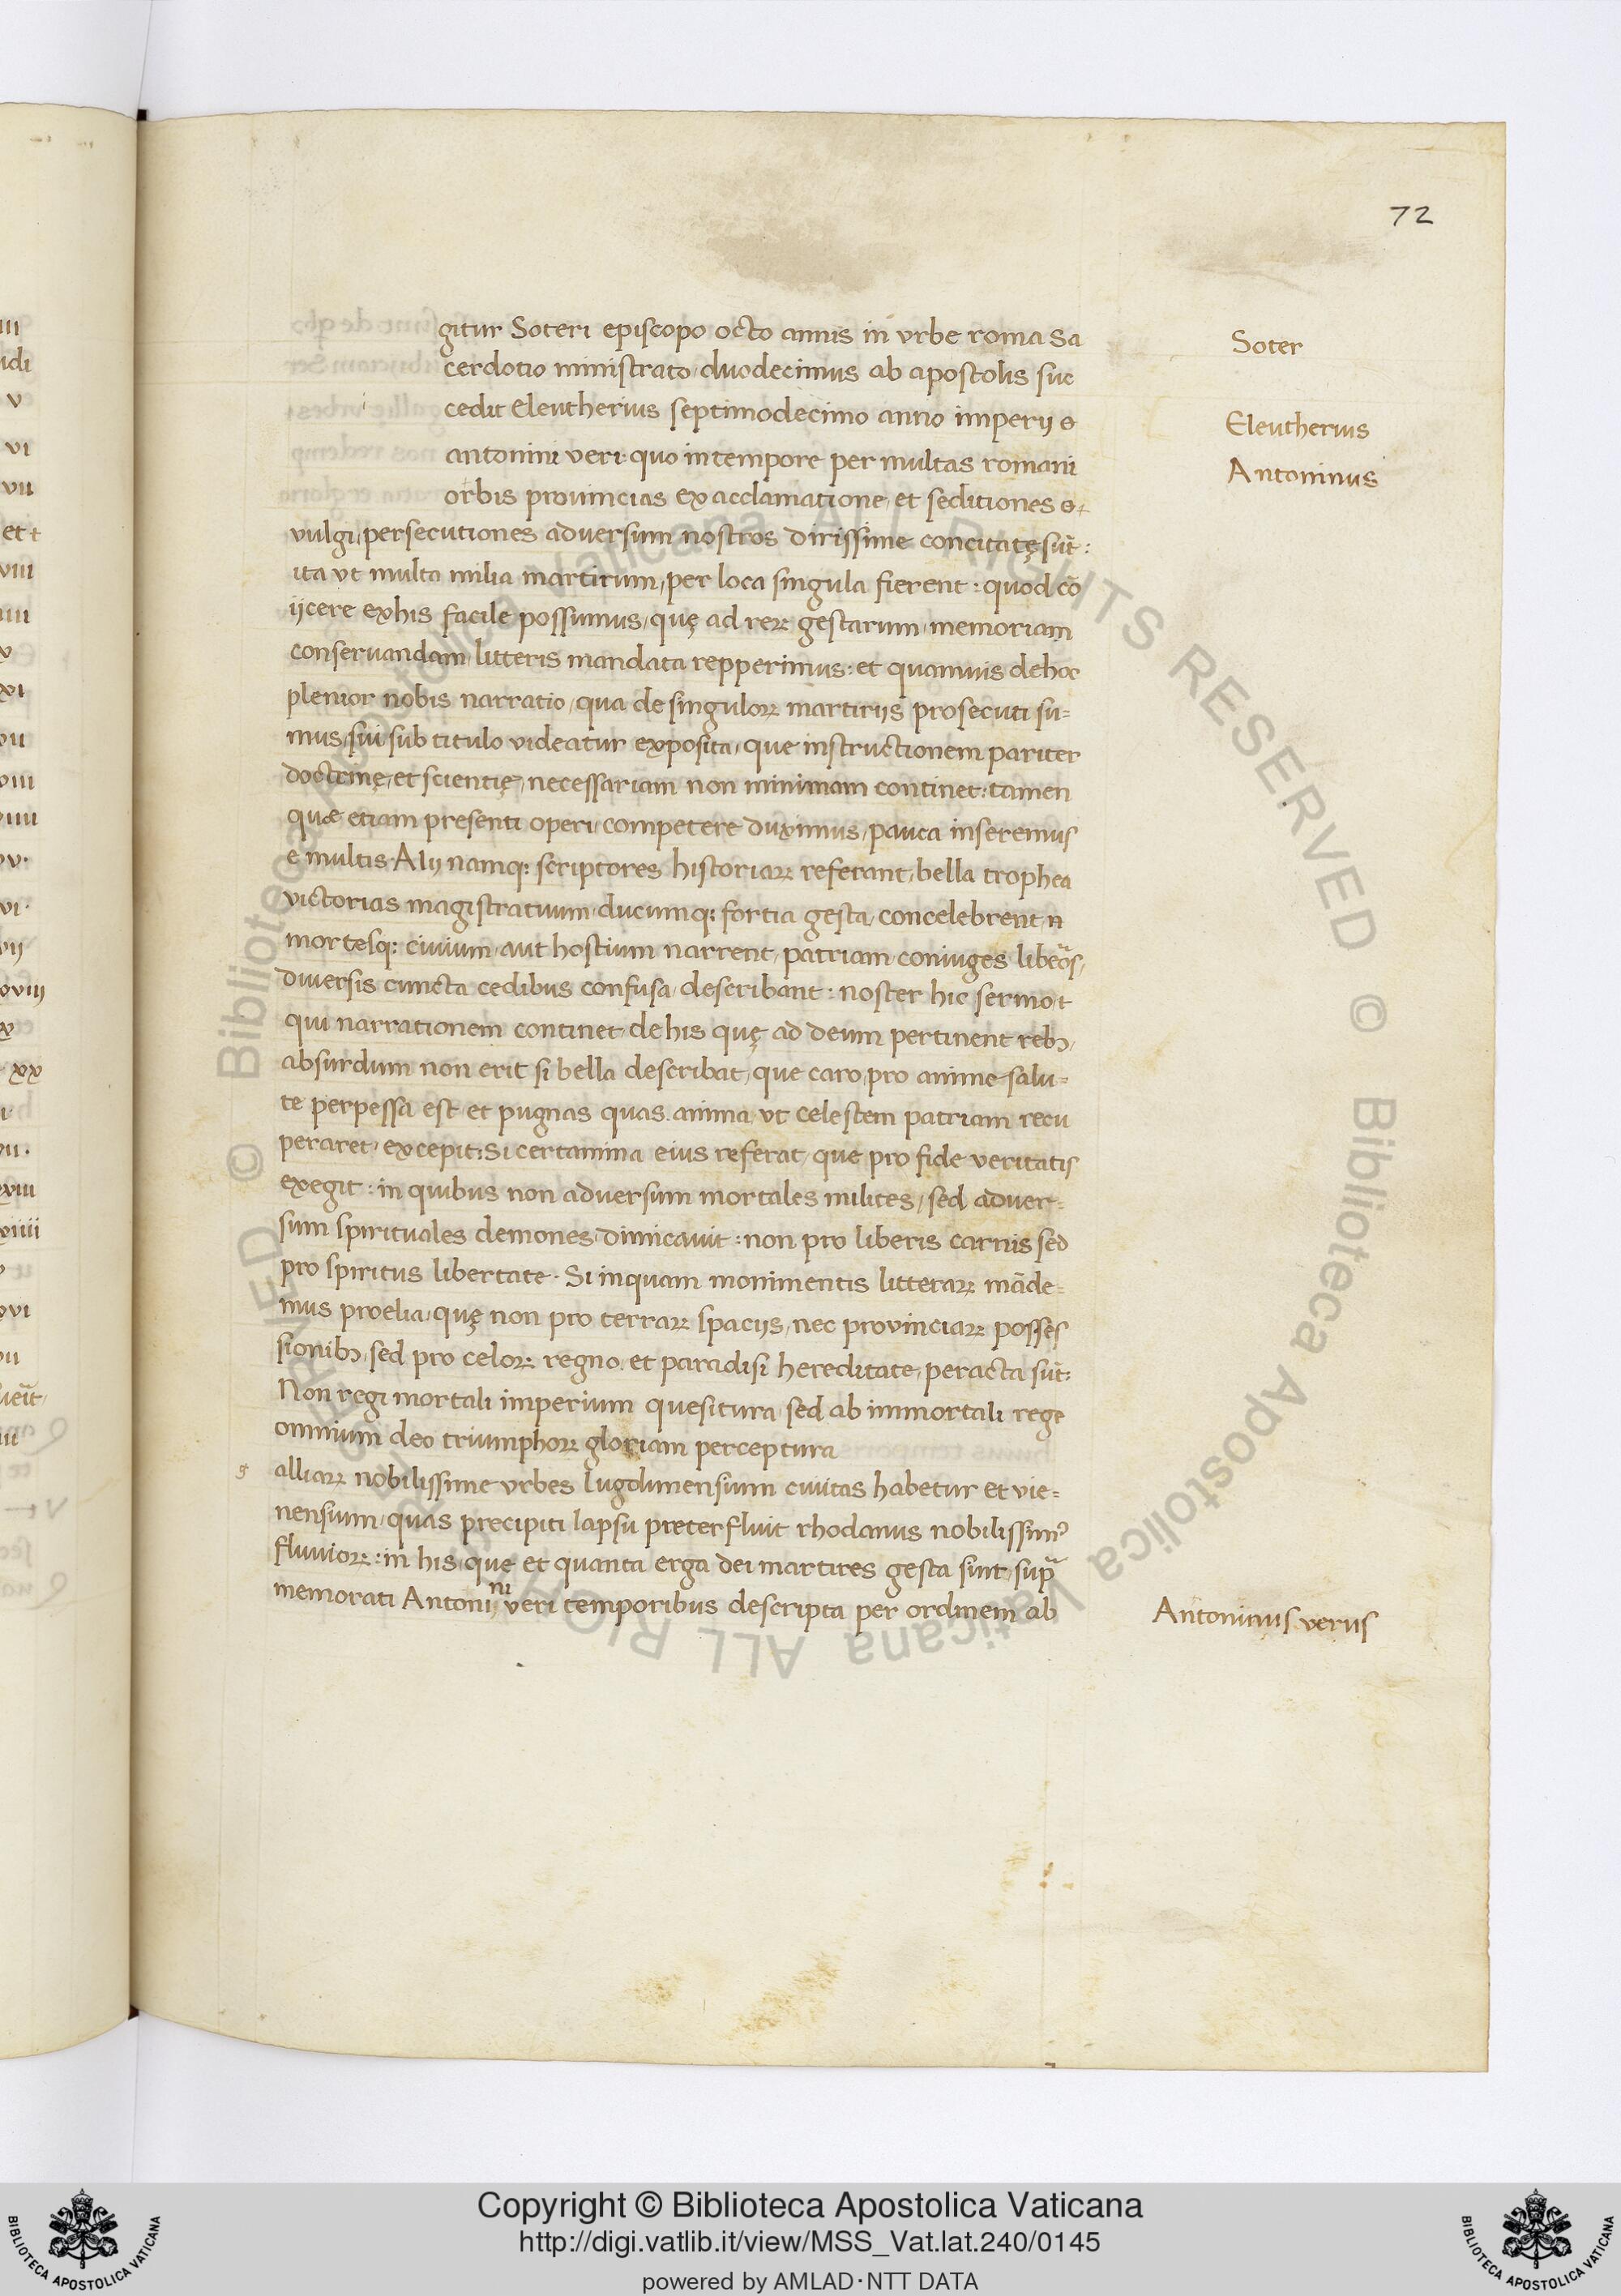 72
gitur Soteri episcopo octo annis in vrbe roma Sa
cerdotio ministrato duodecimus ab apostolis suc
cedit Eleutherius septimodecimo anno imperij
antonini veri: quo in tempore per multas romani
orbis provincias ex acclamatione et seditiones
vulgi persecutiones adversum nostros dirissime concitatę sūt:
ita vt multa milia martirum, per loca singula fierent: quod cō
ijcere exhis facile possumus, quę ad reꝝ gestarum memoriam
conservandam litteris mandata repperimus: et quamvis de hoc
plenior nobis narratio, qua de singuloꝝ martirijs prosecuti su=
mus, sui sub titulo videatur exposita, que instructionem pariter
doctrinę et scientię, necessariam non minimam continet: tamen
quæ etiam presenti operi competere duximus, pauca inseremus
e multis. Alij namq; scriptores historiaꝝ referant, bella trophea
victorias magistratuum ducumq; fortia gesta concelebrent
mortesq; civium aut hostium narrent, patriam coniuges liberos,
diversis cuncta cedibus confusa describant: noster hic sermo
qui narrationem continet de his quę ad deum pertinent rebꝫ,
absurdum non erit si bella describat, que caro pro anime salu=
te perpessa est et pugnas quas anima vt celestem patriam recu
peraret excepit: Si certamina eius referat que pro fide veritatis
exegit: in quibus non adversum mortales milites, sed adver=
sum spirituales demones dimicavit: non pro liberis carnis sed
pro spiritus libertate. Si inquam monimentis litteraꝝ māde=
mus proelia, quę non pro terraꝝ spacijs, nec provinciaꝝ posses
sionibꝫ, sed pro celoꝝ regno et paradisi hereditate, peracta sūt:
Non regi mortali imperium quesitura sed ab immortali rege
omnium deo triumphoꝝ gloriam perceptura
g alliaꝝ nobilissime vrbes lugdunensium civitas habetur et vie=
nensium, quas precipiti lapsu preterfluit rhodanus nobilissimꝰ
fluvioꝝ: in his que et quanta erga dei martires gesta sint, supª
memorati Antonini veri temporibus descripta per ordinem ab
Soter
Eleutherius
Antoninus
Antoninus verus
iii
v
vi
vii
viii
xx
© Biblioteca Apostolica Vaticana ALL RIGHTS RESERVED
Copyright © Biblioteca Apostolica Vaticana
http://digi.vatlib.it/view/MSS_Vat.lat.240/0145
powered by AMLAD·NTT DATA
BIBLIOTECA APOSTOLICA VATICANA
BIBLIOTECA APOSTOLICA VATICANA